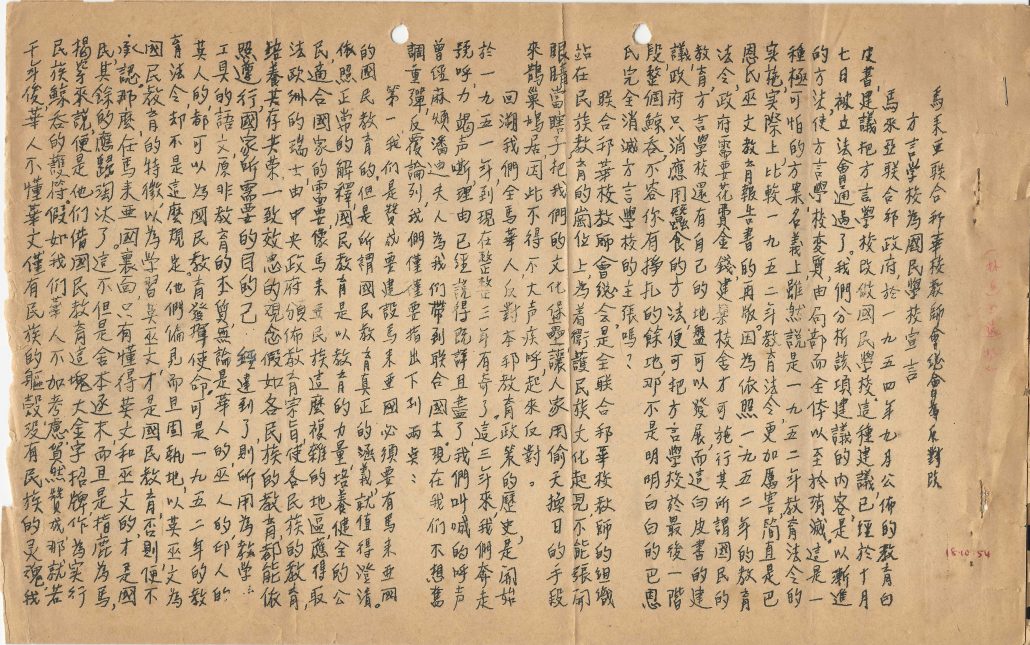 馬来亜联合邦華校教師會總會為反對改
方言學校為國民學校宣言
馬來亞联合邦政府於一九五四年九月公佈的教育白
皮書,建議把方言學校改做國民學校,這种建議已經於十月
七日被立法會通過了。我們分析該項建議的内容,是以漸進
的方法,使方言學校本質,由局部而全体以至於殘滅,這是一
種極可怕的方案,名義上雖然說是一九五二年教育法令的
实施,实際上,比較一九五二年教育法令更加厲害,簡直是巴
恩氏巫文教育報告書的再版。因為依照一九五二年的教育
法令,政府需要花費金錢,建築校舍,才可施行其所謂國民的
教育,方言學校還有自己的地盤可以發展,而這白皮書的建
議,政府只消應用蠶食的方法,便可把方言學校於最後一階
段,整個鯨吞,不容你有掙扎的餘地,那不是明明白白的巴恩
氏完全消滅方言學校的主張嗎?
联合邦華校教師會總會是全联合邦華校教師的組織
站在民族教育的崗位上,為着衛護民族文化起見,不能張開
眼睛當瞎子,把我們的文化堡壘讓人家用偷天換日的手段
來鵲巢鳩居,因此不得不大声疾呼,起來反對。
回溯我們全馬華人反對本邦教育政策的歷史,是開始
於一九五一年,到現在整整三年有奇了。這三年來,我們奔走
號呼,力竭声嘶,理由已經說得既詳且盡了,我們叫喊的呼声
曾經麻煩潘迪夫人為我們帶到联合國去。現在我們不想舊
調重彈,反覆論列,我們僅僅要指出下列兩点:
第一,我們是贊成要建設馬来亜,必須要有馬来亜國
的國民教育的,但是所謂國民教育真正的涵義,就值得澄清。
依照正常的解釋,國民教育是以教育的力量,培養健全的公
民,適合國家的需要,像馬来亜民族這麽複雜的地區,應得取
法欧洲的瑞士,由中央政府頒佈教育宗旨,使各民族的教育,
培養共存共荣一致效忠的观念,假如各民族的教育都能依
照遵行,國家所需要的目的已經達到了,則所用為教學
工具的語文,原非教育的本質,無論是華人的巫人的印人的
英人的,都可以為國民教育發揮使命。可是一九五二年的教
育法令却不是這麽規定,他們偏見而且固執地,以英巫文為
國民教育的特徵,以為學習英巫文,才是國民教育,否則,便不
承認,那麽任馬来亜國裏面,只有懂得英文和巫文的才是國
民,其餘的應歸淘汰了。這不但是舍本逐末,而且是指鹿為馬,
揭穿來説,便是他們借國民教育這塊大金字招牌,作為实行
民族鯨吞的護符。假如我們華人不加考慮,貿然贊成,那就若
干年後,華人不懂華文,僅有民族的軀殼,没有民族的灵魂,我
18·10·54